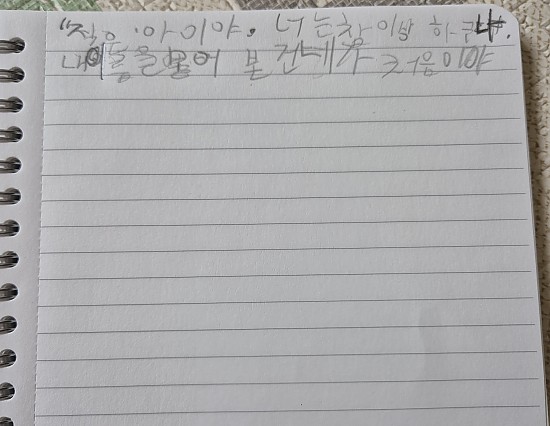 "작은 아이야. 너는참 하구나.
내이름을물어 본건네가 처음이야